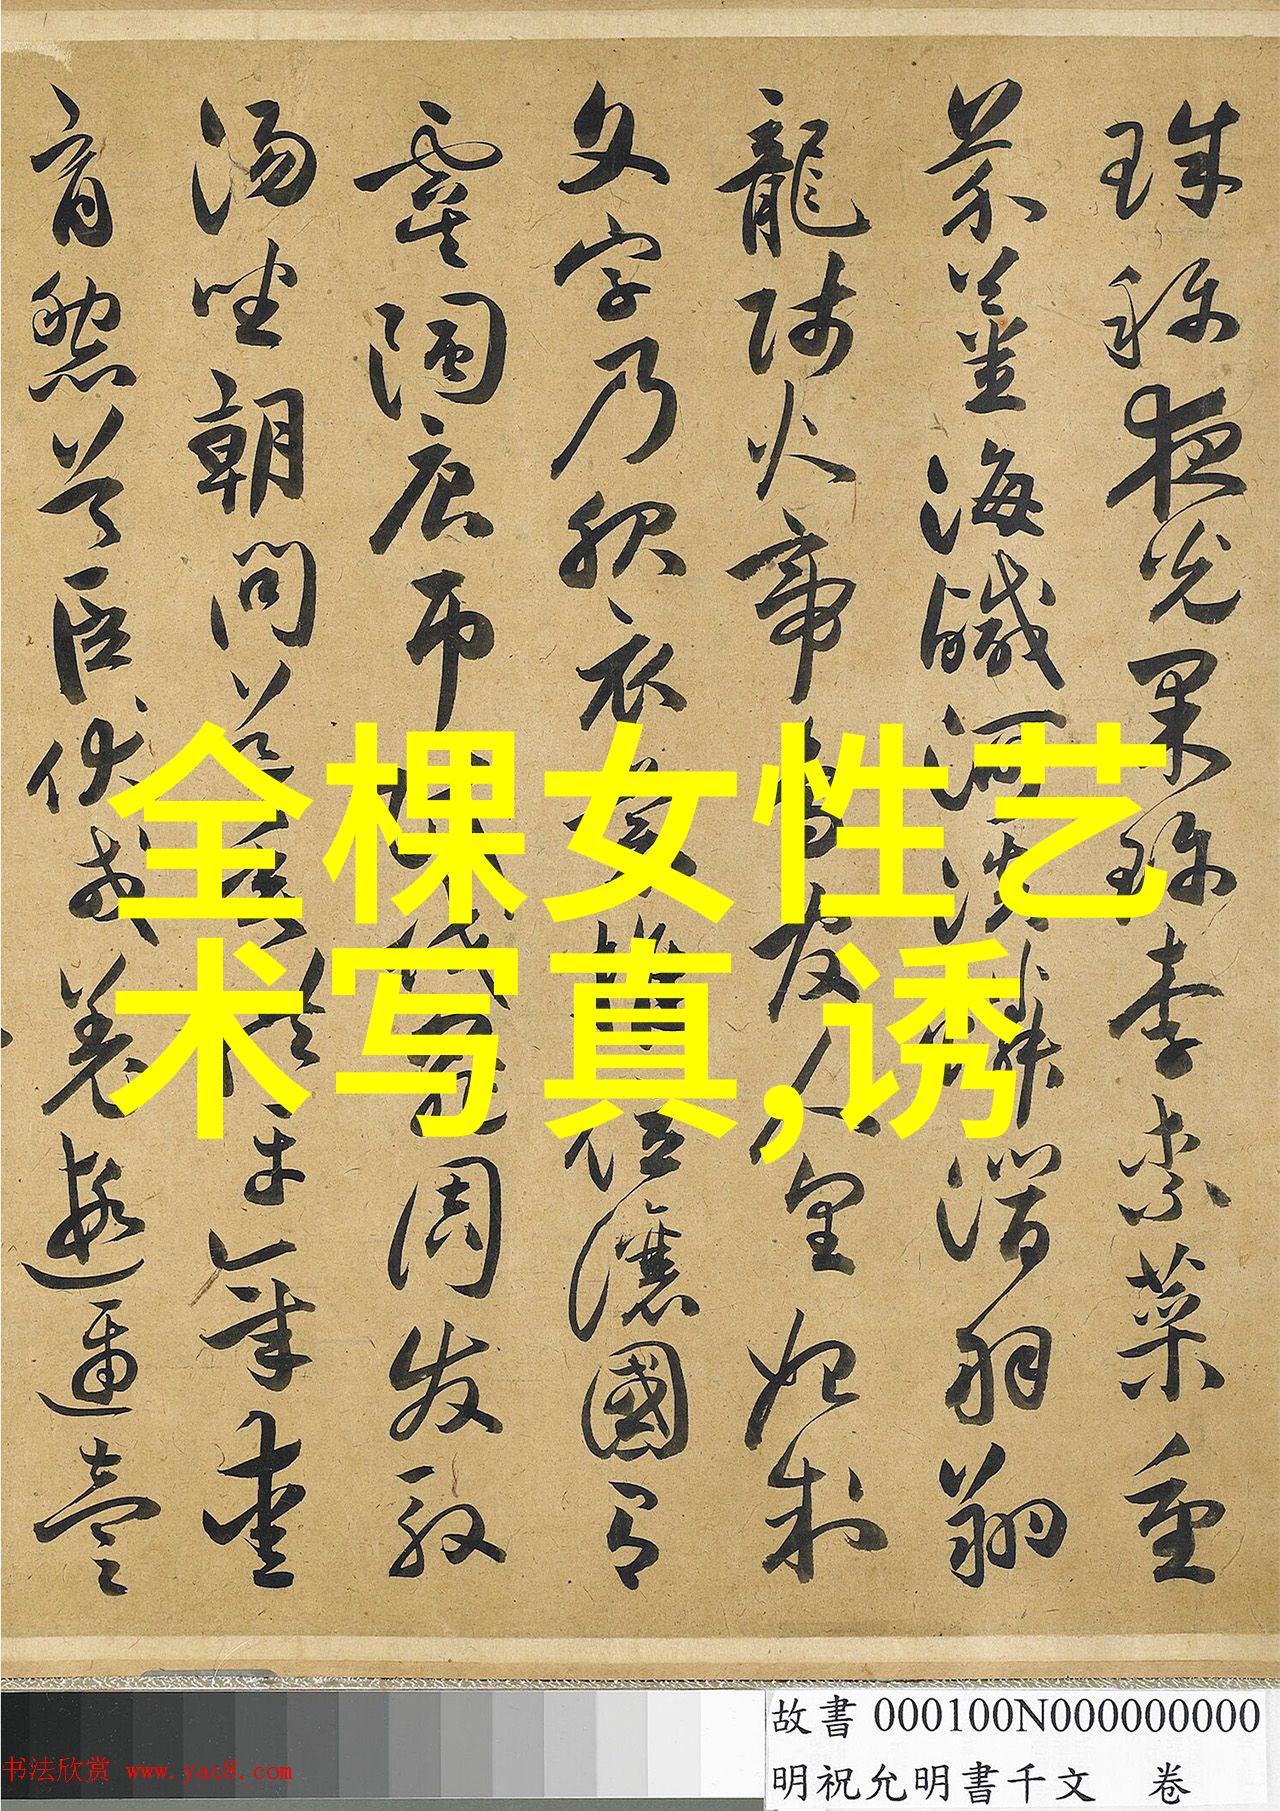 珠稱夜光果珍李柰菜重
芥薑海鹹河淡鱗潛羽翔
龍師火帝鳥官人皇始制
文字乃服衣裳推位讓國有
虞陶唐弔民伐罪周發殷
湯坐朝問道垂拱平章愛
育黎首臣伏戎羌遐邇壹
全棵女性艺
术写真,诱
故書 000100N000000000
明祝允明書千文 卷
书法欣赏 www.yac8.com